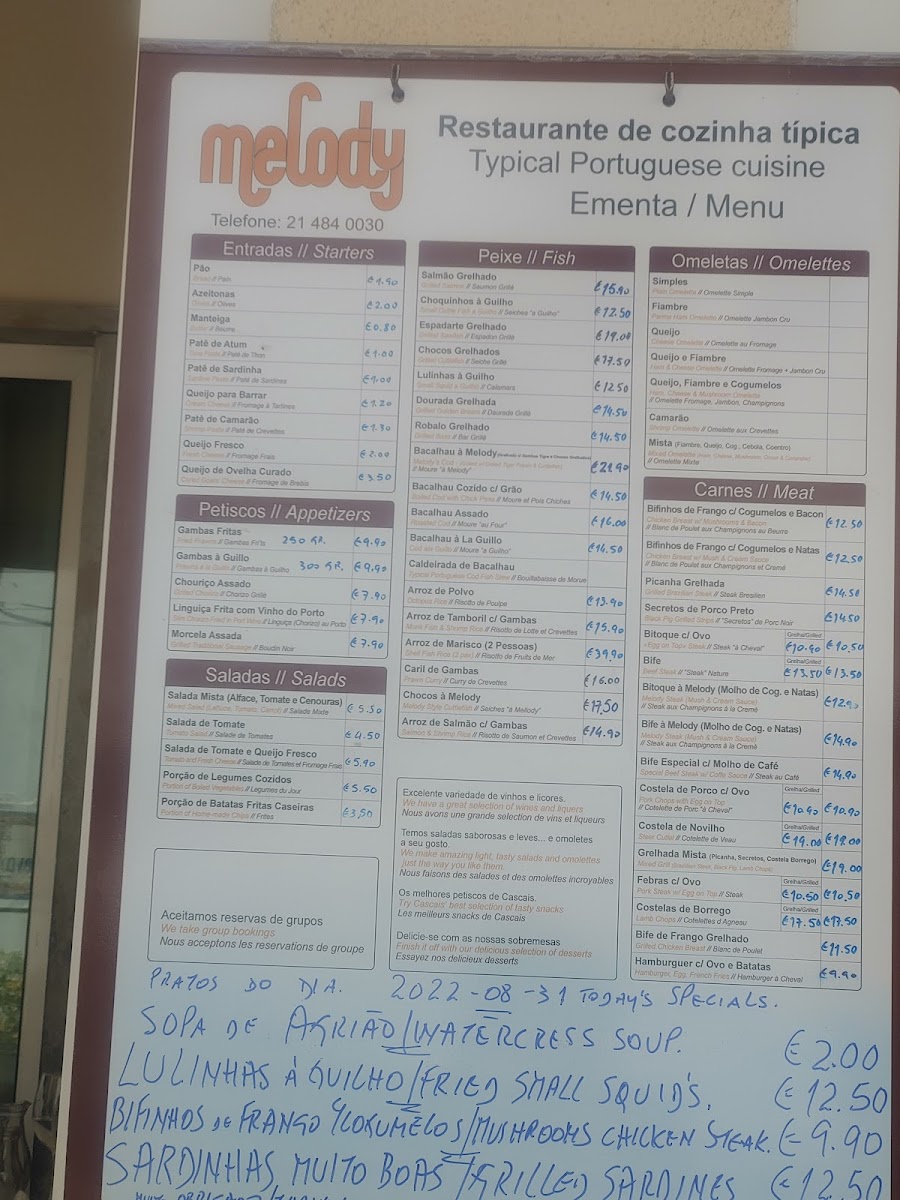 melody
Telefone: 21 484 0030
Restaurante de cozinha típica
Typical Portuguese cuisine
Ementa / Menu
Entradas // Starters
Pão €1.90
Bread // Pain
Azeitonas €2.00
Olives // Olives
Manteiga €0.80
Butter // Beurre
Patê de Atum €1.00
Tuna Paste // Paté de Thon
Patê de Sardinha €1.00
Sardine Paste // Paté de Sardines
Queijo para Barrar €1.20
Cream Cheese // Fromage à Tartines
Patê de Camarão €1.30
Shrimp Paste // Paté de Crevettes
Queijo Fresco €2.00
Fresh Cheese // Fromage Frais
Queijo de Ovelha Curado €3.50
Cured Goats Cheese // Fromage de Brebis
Petiscos // Appetizers
Gambas Fritas 250 GR. €9.90
Fried Prawns // Gambas Frits
Gambas à Guillo 300 GR. €9.90
Prawns à la Guillo // Gambas à Guilho
Chouriço Assado €7.90
Grilled Chorizo // Chorizo Grillé
Linguiça Frita com Vinho do Porto €7.90
Slim Chouriço Fried in Port Wine // Linguiça (Chorizo) au Porto
Morcela Assada €7.90
Grilled Traditional Sausage // Boudin Noir
Saladas // Salads
Salada Mista (Alface, Tomate e Cenouras) €5.50
Mixed Salad (Lettuce, Tomato, Carrot) // Salade Made
Salada de Tomate €4.50
Tomato Salad // Salade de Tomates
Salada de Tomate e Queijo Fresco €5.90
Tomato and Fresh Cheese // Salade de Tomates et Fromage Frais
Porção de Legumes Cozidos €5.50
Portion of Boiled Vegetables // Legumes du Jour
Porção de Batatas Fritas Caseiras €3,50
Portion of Home-made Chips // Frites
Aceitamos reservas de grupos
We take group bookings
Nous acceptons les reservations de groupe
Peixe // Fish
Salmão Grelhado €15.90
Grilled Salmon // Saumon Grillé
Choquinhos à Guilho €12.50
Small Cuttle Fish a Guilho // Seiches "a Guilho"
Espadarte Grelhado €19.00
Grilled Swordfish // Espadon Grillé
Chocos Grelhados €17.50
Grilled Cuttlefish // Seiche Grillé
Lulinhas à Guilho €12.50
Small Squid a Guilho // Calamars
Dourada Grelhada €14.50
Grilled Golden Bream // Daurade Grillé
Robalo Grelhado €14.50
Grilled Bass // Bar Grillé
Bacalhau à Melody €21.90
// Moure "à Melody"
Bacalhau Cozido c/ Grão €14.50
Boiled Cod with Chick Peas // Moure et Pois Chiches
Bacalhau Assado €16.00
Roasted Cod // Moure "au Four"
Bacalhau à La Guillo €14.50
Cod ala Guillo // Moure "a Guilho"
Caldeirada de Bacalhau
Typical Portuguese Cod Fish Stew // Bouillabaisse de Morue
Arroz de Polvo €13.90
Octopus Rice // Risotto de Poulpe
Arroz de Tamboril c/ Gambas €15.90
Monk Fish & Shrimp Rice // Risotto de Lotte et Crevettes
Arroz de Marisco (2 Pessoas) €39.90
Shell Fish Rice (2 per) // Risotto de Fruits de Mer
Caril de Gambas €16.00
Prawn Curry // Curry de Crevettes
Chocos à Melody €17,50
Melody Style Cuttlefish // Seiches "à Mellody"
Arroz de Salmão c/ Gambas €14.90
Salmon & Shrimp Rice // Risotto de Saumon et Crevettes
Excelente variedade de vinhos e licores.
We have a great selection of wines and liquers
Nous avons une grande selection de vins et liqueurs
Temos saladas saborosas e leves... e omoletes
a seu gosto.
We make amazing light, tasty salads and omolettes
just the way you like them.
Nous faisons des salades et des omolettes incroyables
Os melhores petiscos de Cascais.
Try Cascais' best selection of tasty snacks
Les meilleurs snacks de Cascais
Delicie-se com as nossas sobremesas
Finish it off with our delicious selection of desserts
Essayez nos delicieux desserts
Omeletas // Omelettes
Simples
Plain Omelette // Omelette Simple
Fiambre
Parma Ham Omelette // Omelette Jambon Cru
Queijo
Cheese Omelette // Omelette au Fromage
Queijo e Fiambre
Ham & Cheese Omelette // Omelette Fromage + Jambon Cru
Queijo, Fiambre e Cogumelos
Ham, Cheese & Mushroom Omelette
// Omelette Fromage, Jambon, Champignons
Camarão
Shrimp Omelette // Omelette aux Crevettes
Mista (Fiambre, Queijo, Cog., Cebola, Coentro)
Mixed Omelette (Ham, Cheese, Mushroom, Onion & Coriander)
// Omelette Mixte
Carnes // Meat
Bifinhos de Frango c/ Cogumelos e Bacon €12.50
Chicken Breast w/ Mushrooms & Bacon
// Blanc de Poulet aux Champignons et Beurre
Bifinhos de Frango c/ Cogumelos e Natas €12,50
Chicken Breast w/ Mush & Cream Sauce
// Blanc de Poulet aux Champignons et Cremé
Picanha Grelhada €14,50
Grilled Brazilian Steak // Steak Bresilien
Secretos de Porco Preto €14.50
Black Pig Grilled Strips // "Secretos" de Porc Noir
Bitoque c/ Ovo Grelha/Grilled €10.90 €10,50
«Egg on Top» Steak // Steak "à Cheval"
Bife Grelha/Grilled €13.50 €13.50
Beef Steak // "Steak" Nature
Bitoque à Melody (Molho de Cog. e Natas) €12.90
Melody Steak (Mush & Cream Sauce)
// Steak aux Champignons à la Cremé
Bife à Melody (Molho de Cog. e Natas) €14.90
Melody Steak (Mush & Cream Sauce)
// Steak aux Champignons à la Cremé
Bife Especial c/ Molho de Café €14.90
Special Beef Steak w/ Coffe Sauce // Steak au Café
Costela de Porco c/ Ovo Grelha/Grilled €10.90 €10.90
Pork Chops with Egg on Top
// Cotelette de Porc "à Cheval"
Costela de Novilho Grelha/Grilled €19.00 €19.00
Steer Cutlet // Cotelette de Veau
Grelhada Mista (Picanha, Secretos, Costela Borrego) €19.00
Mixed Grill (Brazilian Steak, Black Pig, Lamb Chops)
Febras c/ Ovo Grelha/Grilled €10.50 €10,50
Pork Steak w/ Egg on Top // Steak
Costelas de Borrego Grelha/Grilled €17.50 €17.50
Lamb Chops // Cotelettes d'Agneau
Bife de Frango Grelhado €11.50
Grilled Chicken Breast // Blanc de Poulet
Hamburguer c/ Ovo e Batatas €9.90
Hamburger, Egg, French Fries // Hamburger à Cheval
PRATOS DO DIA. 2022-08-31 TODAY'S SPECIALS.
SOPA DE AGRIÃO/WATERCRESS SOUP. €2.00
LULINHAS À GUILHO/FRIED SMALL SQUIDS. €12.50
BIFINHOS DE FRANGO C/COGUMELOS/MUSHROOMS CHICKEN STEAK. €9.90
SARDINHAS, MUITO BOAS/GRILLED SARDINES €12.50